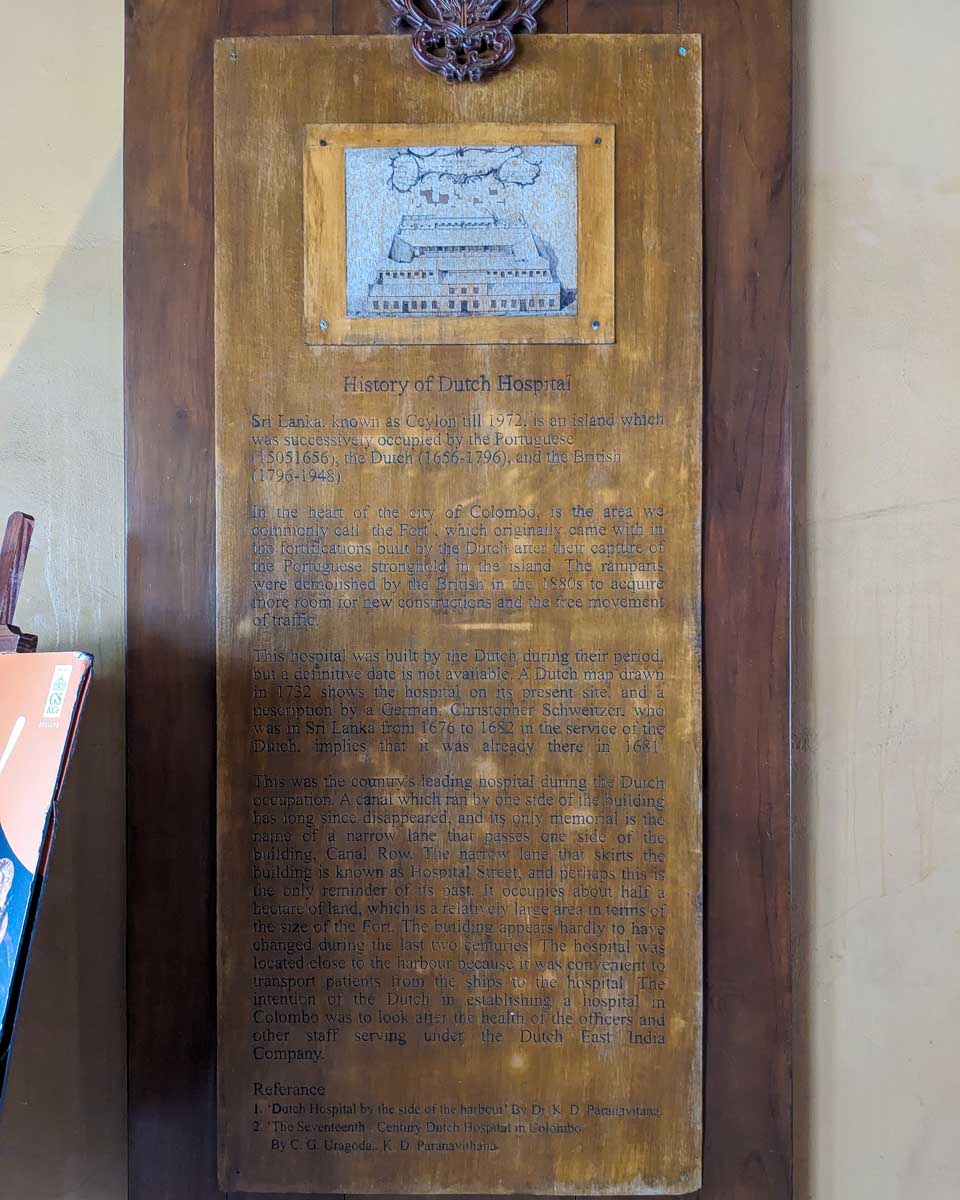 History of Dutch Hospital
Sri Lanka, known as Ceylon till 1972, is an island which
was successively occupied by the Portuguese
(15051656), the Dutch (1656-1796), and the British
(1796-1948)
In the heart of the city of Colombo, is the area we
commonly call the Fort , which originally came with in
the fortifications built by the Dutch after their capture of
the Portuguese stronghold in the island. The ramparts
were demolished by the British in the 1880s to acquire
more room for new constructions and the free movement
of traffic.
This hospital was built by the Dutch during their period,
but a definitive date is not available. A Dutch map drawn
in 1732 shows the hospital on its present site, and a
description by a German, Christopher Schweitzer, who
was in Sri Lanka from 1676 to 1682 in the service of the
Dutch, implies that it was already there in 1681.
This was the country's leading hospital during the Dutch
occupation. A canal which ran by one side of the building
has long since disappeared, and its only memorial is the
name of a narrow lane that passes one side of the
building, Canal Row. The narrow lane that skirts the
building is known as Hospital Street, and perhaps this is
the only reminder of its past. It occupies about half a
hectare of land, which is a relatively large area in terms of
the size of the Fort. The building appears hardly to have
changed during the last two centuries. The hospital was
located close to the harbour because it was convenient to
transport patients from the ships to the hospital. The
intention of the Dutch in establishing a hospital in
Colombo was to look after the health of the officers and
other staff serving under the Dutch East India
Company.
Referance
1. 'Dutch Hospital by the side of the harbour' By Dr. K. D. Paranavitana.
2. 'The Seventeenth - Century Dutch Hospital in Colombo
By C. G. Uragoda,. K. D. Paranavithana.
GS